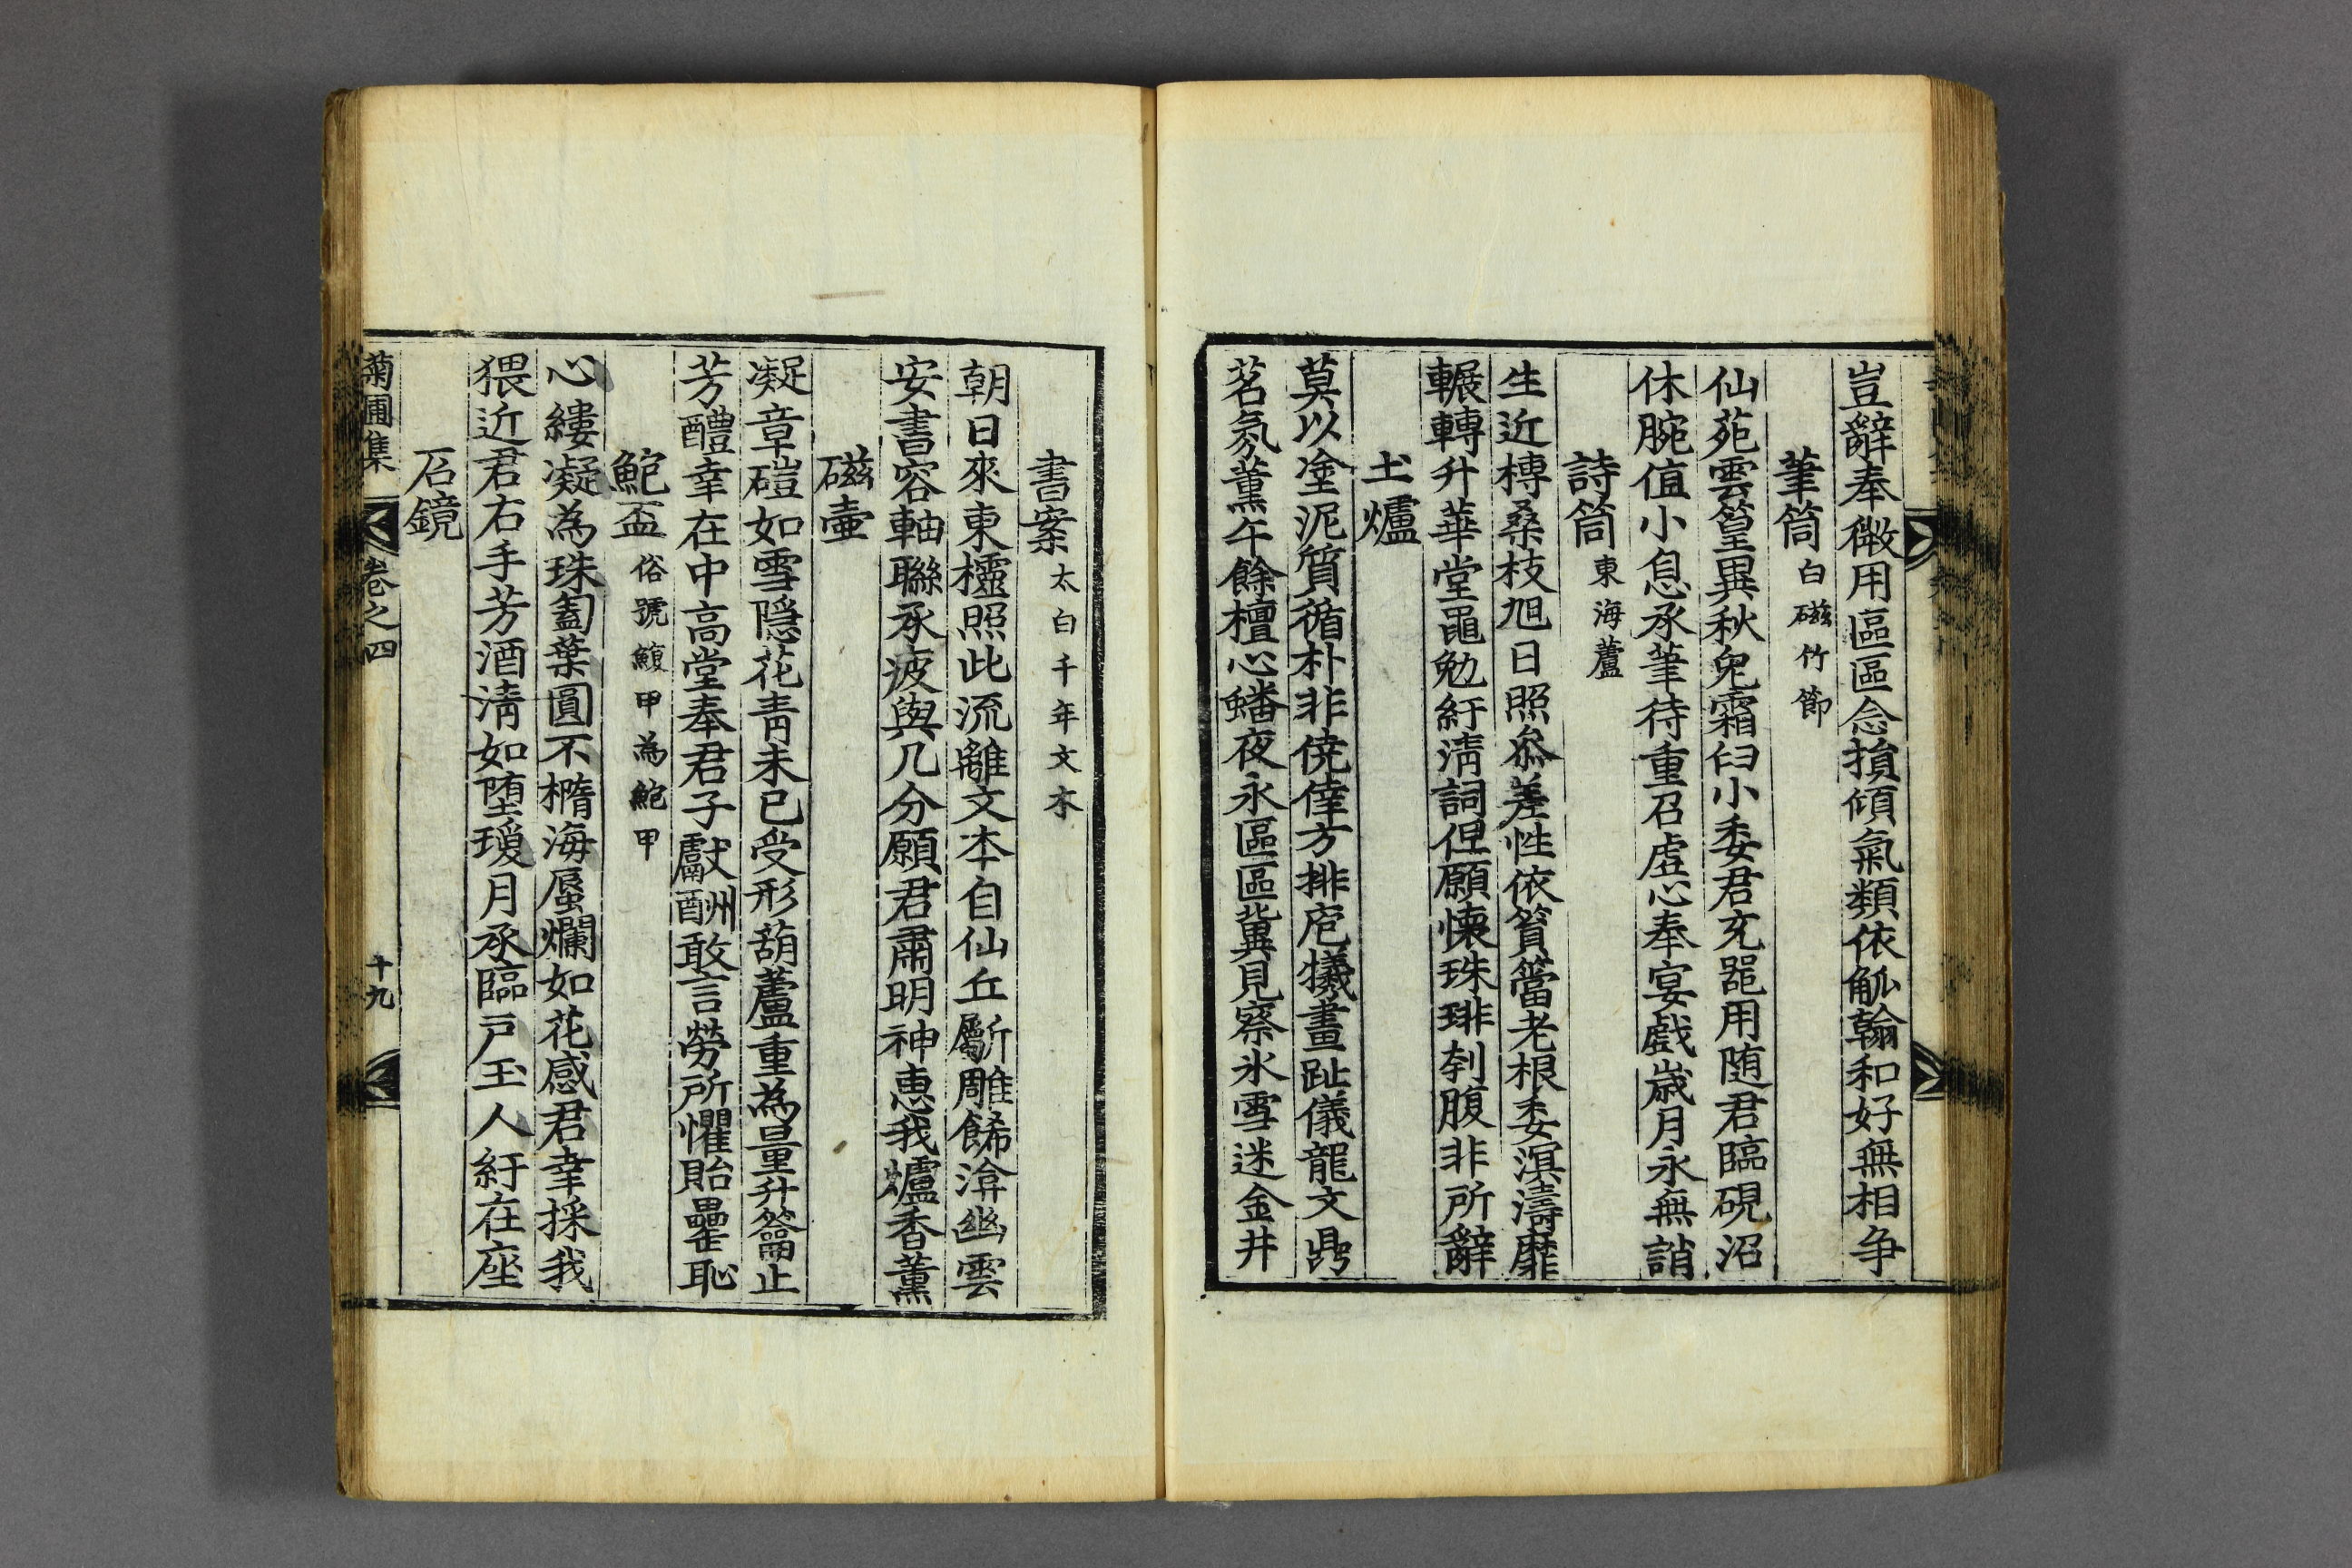 豈辭奉微用區區念損傾氣類依觚翰和好無相争
筆筒白磁竹節
仙苑雲篁異秋兔霜臼小委君充噐用随君臨硯沼
休腕值小息承筆待重召虛心奉宴戱歲月永無誚
詩筒東海蘆
生近榑桑枝旭日照叅差性依篔簹老根委溟濤靡
輾轉升華堂黽勉紆淸詞但願懷珠琲刳腹非所辭
土爐
莫以塗泥質循朴非僥倖方排庖犧畫趾儀龍文鼎
茗氛薰午餘檀心蟠夜永區區冀見察氷雪迷金井
書案太白千年文木
朝日來東櫺照此流離文本自仙丘斸雕餙渰幽雲
安書容軸聯承疲與几分願君肅明神惠我爐香薰
磁壷
凝章磑如雪隱花靑未已受形葫蘆重為量升籥止
芳醴幸在中高堂奉君子獻酬敢言勞所懼貽罍恥
鮑盃俗號鰒甲為鮑甲
心縷凝為珠匎葉圓不橢海蜃爛如花感君幸採我
猥近君右手芳酒淸如墮瑷月承臨戶玉人紆在座
石鏡
菊圃集 卷之四 十九